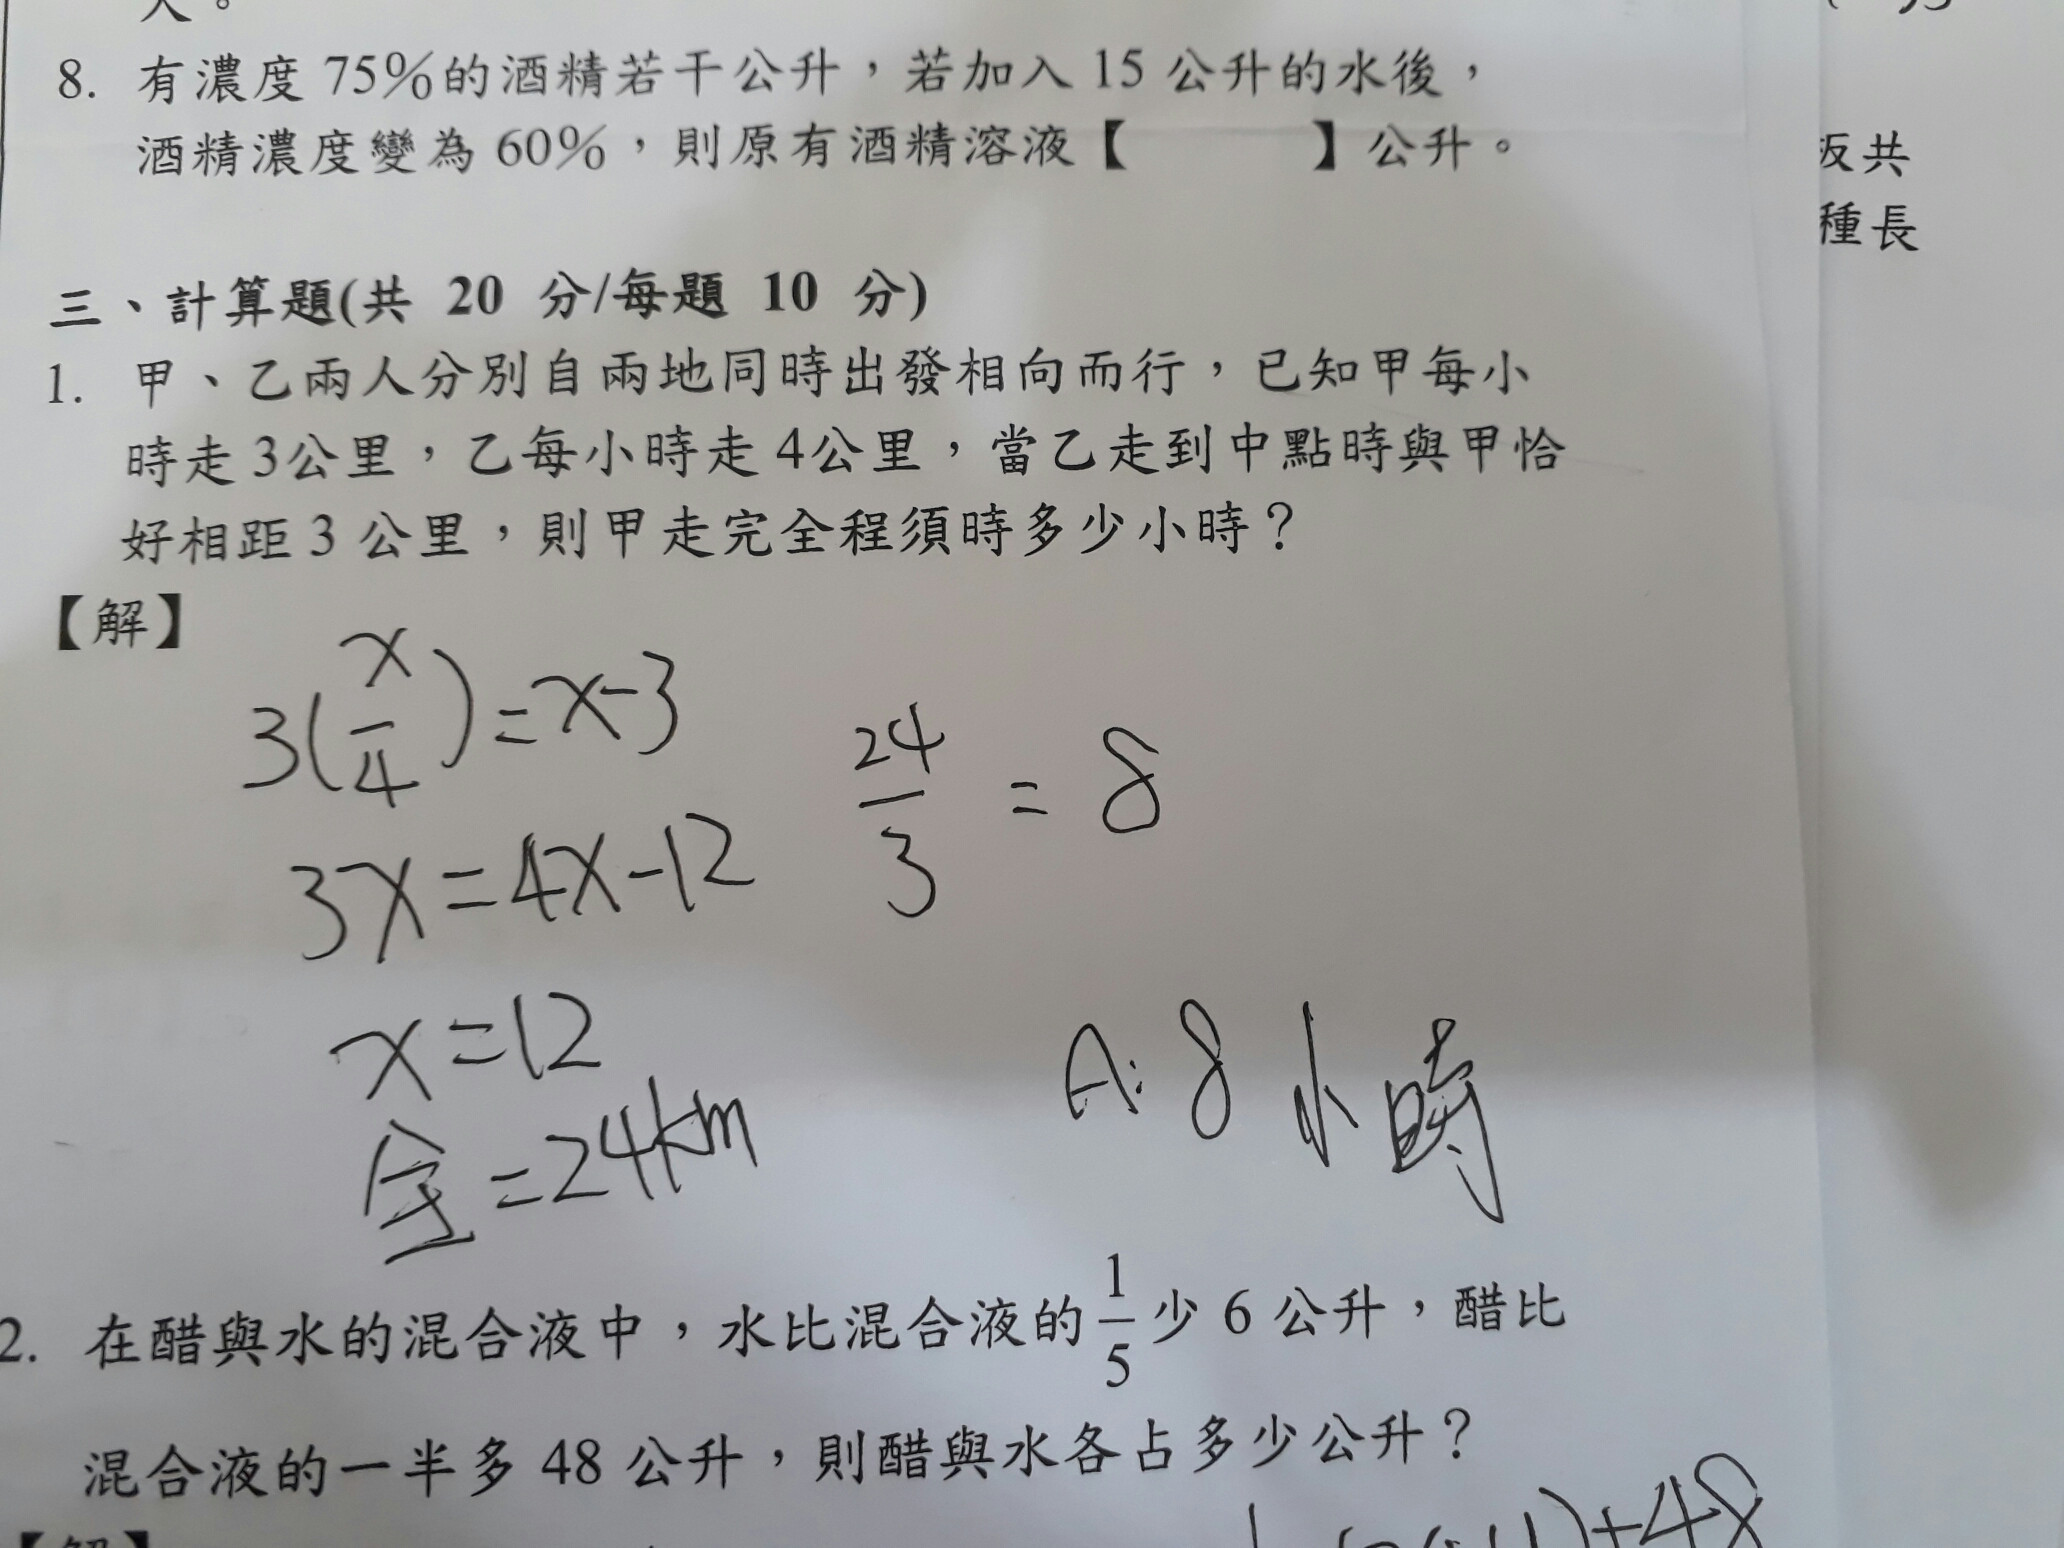 人。
8. 有濃度 75%的酒精若干公升，若加入 15 公升的水後，
酒精濃度變為 60%，則原有酒精溶液【　　　】公升。
三、計算題(共 20 分/每題 10 分)
1. 甲、乙兩人分別自兩地同時出發相向而行，已知甲每小
時走 3公里，乙每小時走 4公里，當乙走到中點時與甲恰
好相距 3 公里，則甲走完全程須時多少小時？
【解】
3(x/4)=x-3
3x=4x-12
x=12
全=24km
24/3 = 8
A:8 小時
2. 在醋與水的混合液中，水比混合液的 1/5 少 6 公升，醋比
混合液的一半多 48 公升，則醋與水各占多少公升？
【解】
+48
板共
種長